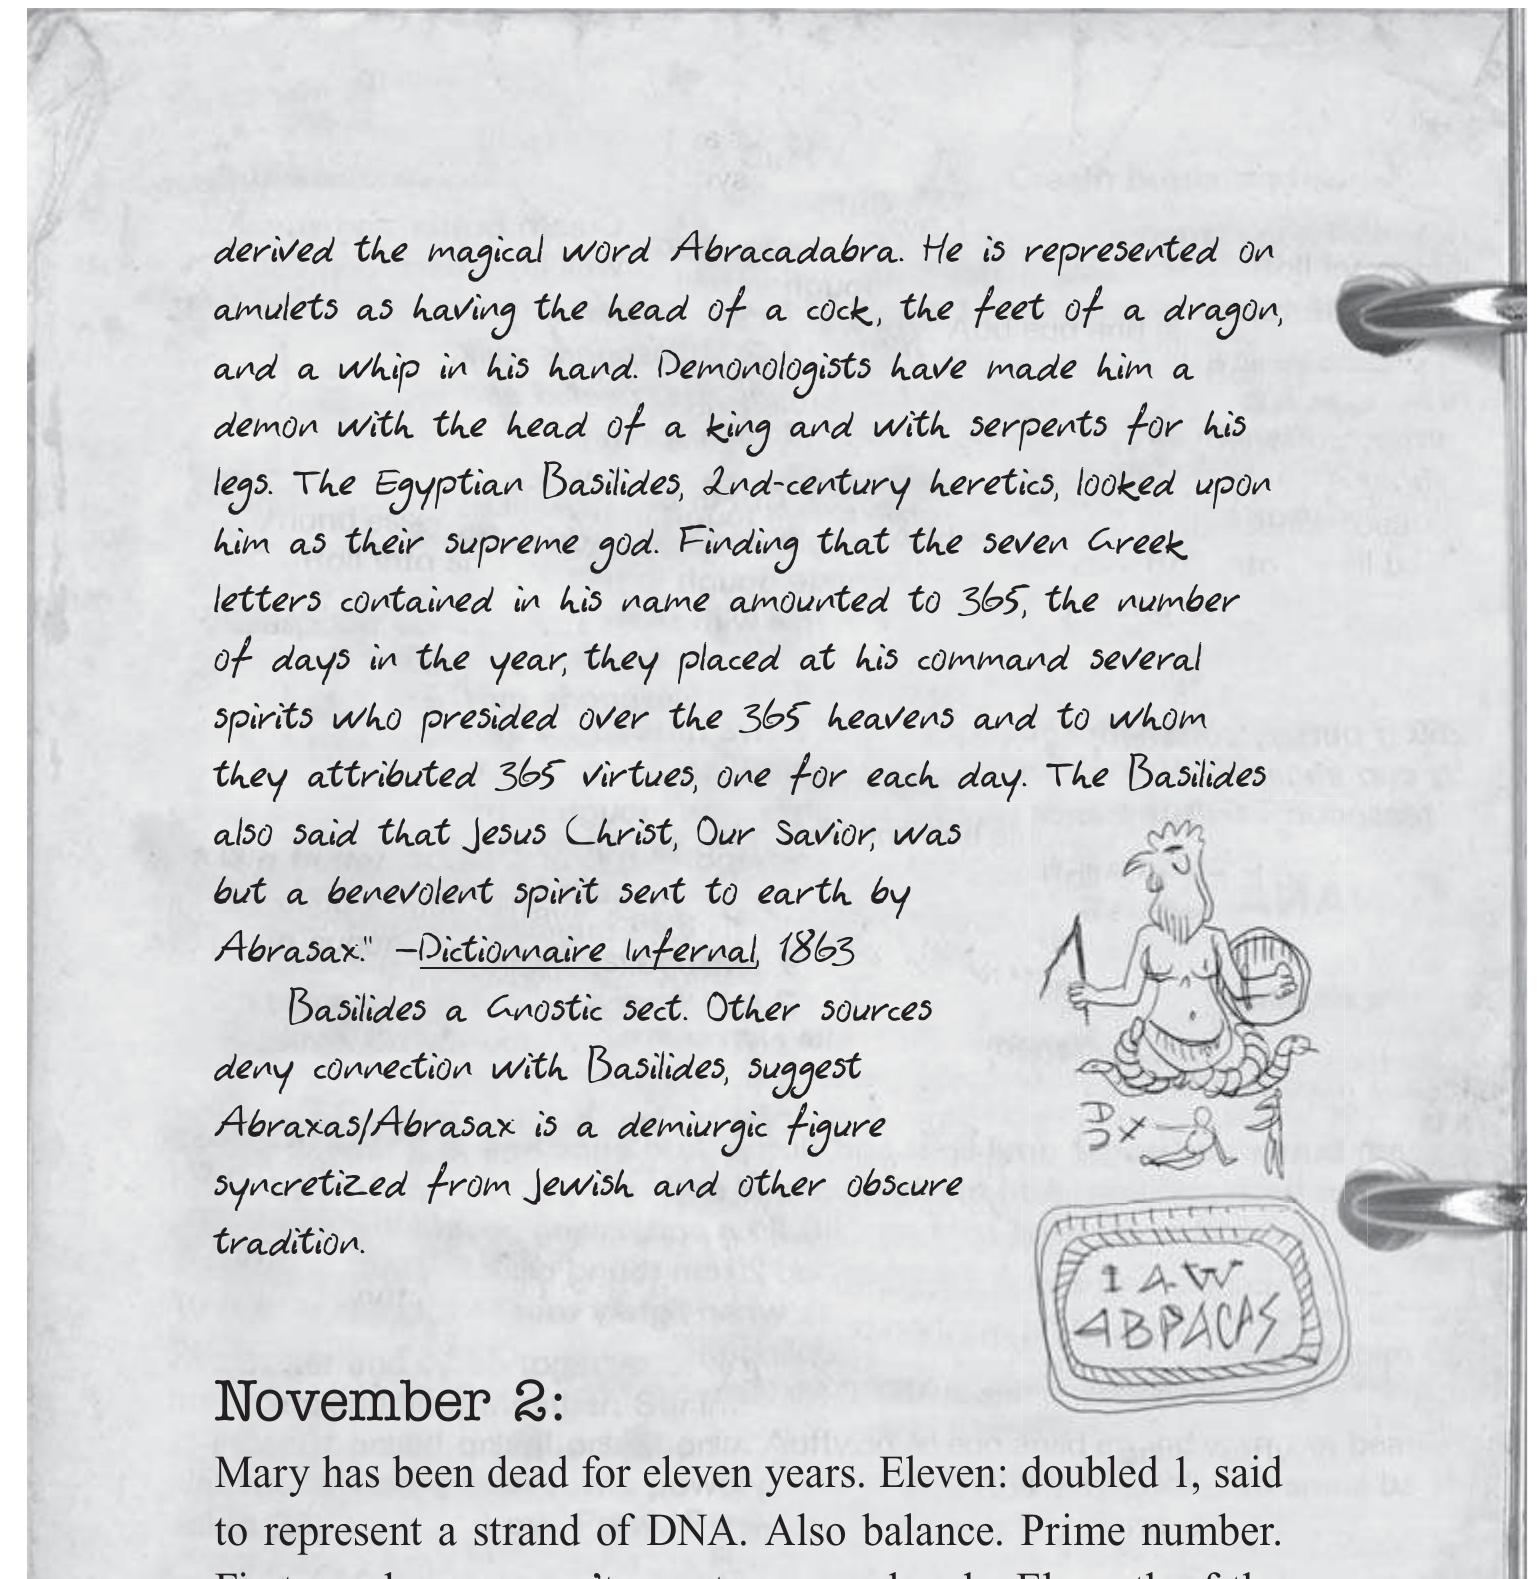 derived the magical word Abracadabra. He is represented on
amulets as having the head of a cock, the feet of a dragon,
and a whip in his hand. Demonologists have made him a
demon with the head of a king and with serpents for his
legs. The Egyptian Basilides, 2nd-century heretics, looked upon
him as their supreme god. Finding that the seven Greek
letters contained in his name amounted to 365, the number
of days in the year, they placed at his command several
spirits who presided over the 365 heavens and to whom
they attributed 365 virtues, one for each day. The Basilides
also said that Jesus Christ, Our Savior, was
but a benevolent spirit sent to earth by
Abrasax." –Dictionnaire Infernal, 1863
Basilides a Gnostic sect. Other sources
deny connection with Basilides, suggest
Abraxas/Abrasax is a demiurgic figure
syncretized from Jewish and other obscure
tradition.
IAW
ABPACAS
November 2:
Mary has been dead for eleven years. Eleven: doubled 1, said
to represent a strand of DNA. Also balance. Prime number.